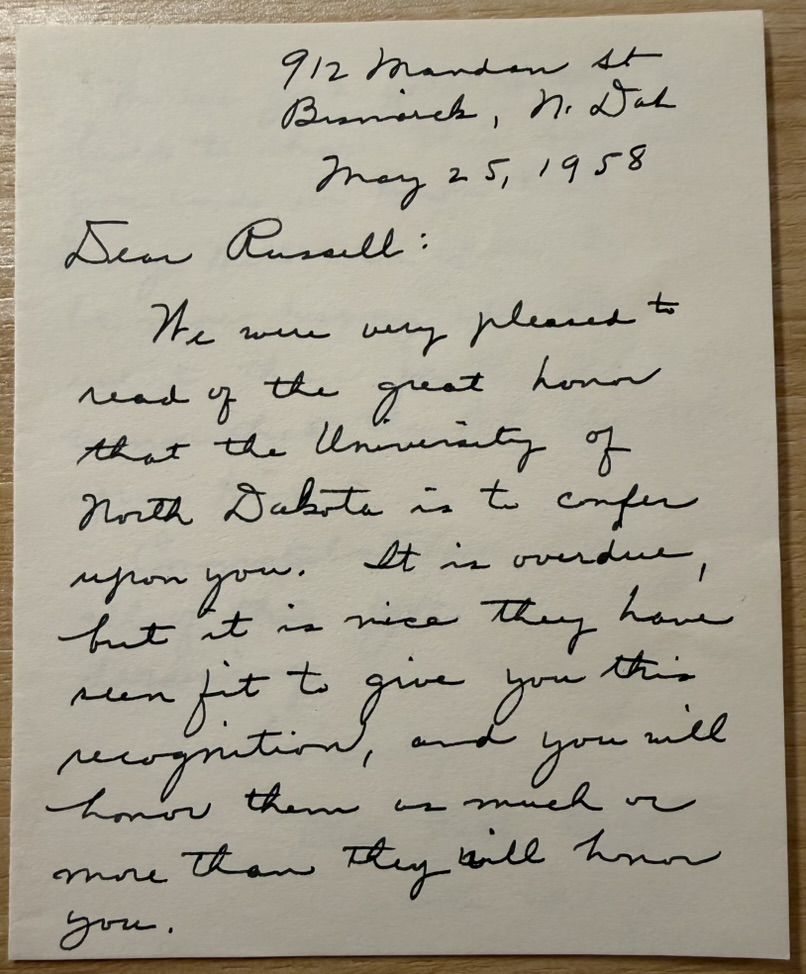 912 Mandan St
Bismarck, N. Dak
May 25, 1958
Dear Russell:
We were very pleased to
read of the great honor
that the University of
North Dakota is to confer
upon you. It is overdue,
but it is nice they have
seen fit to give you this
recognition, and you will
honor them as much or
more than they will honor
you.